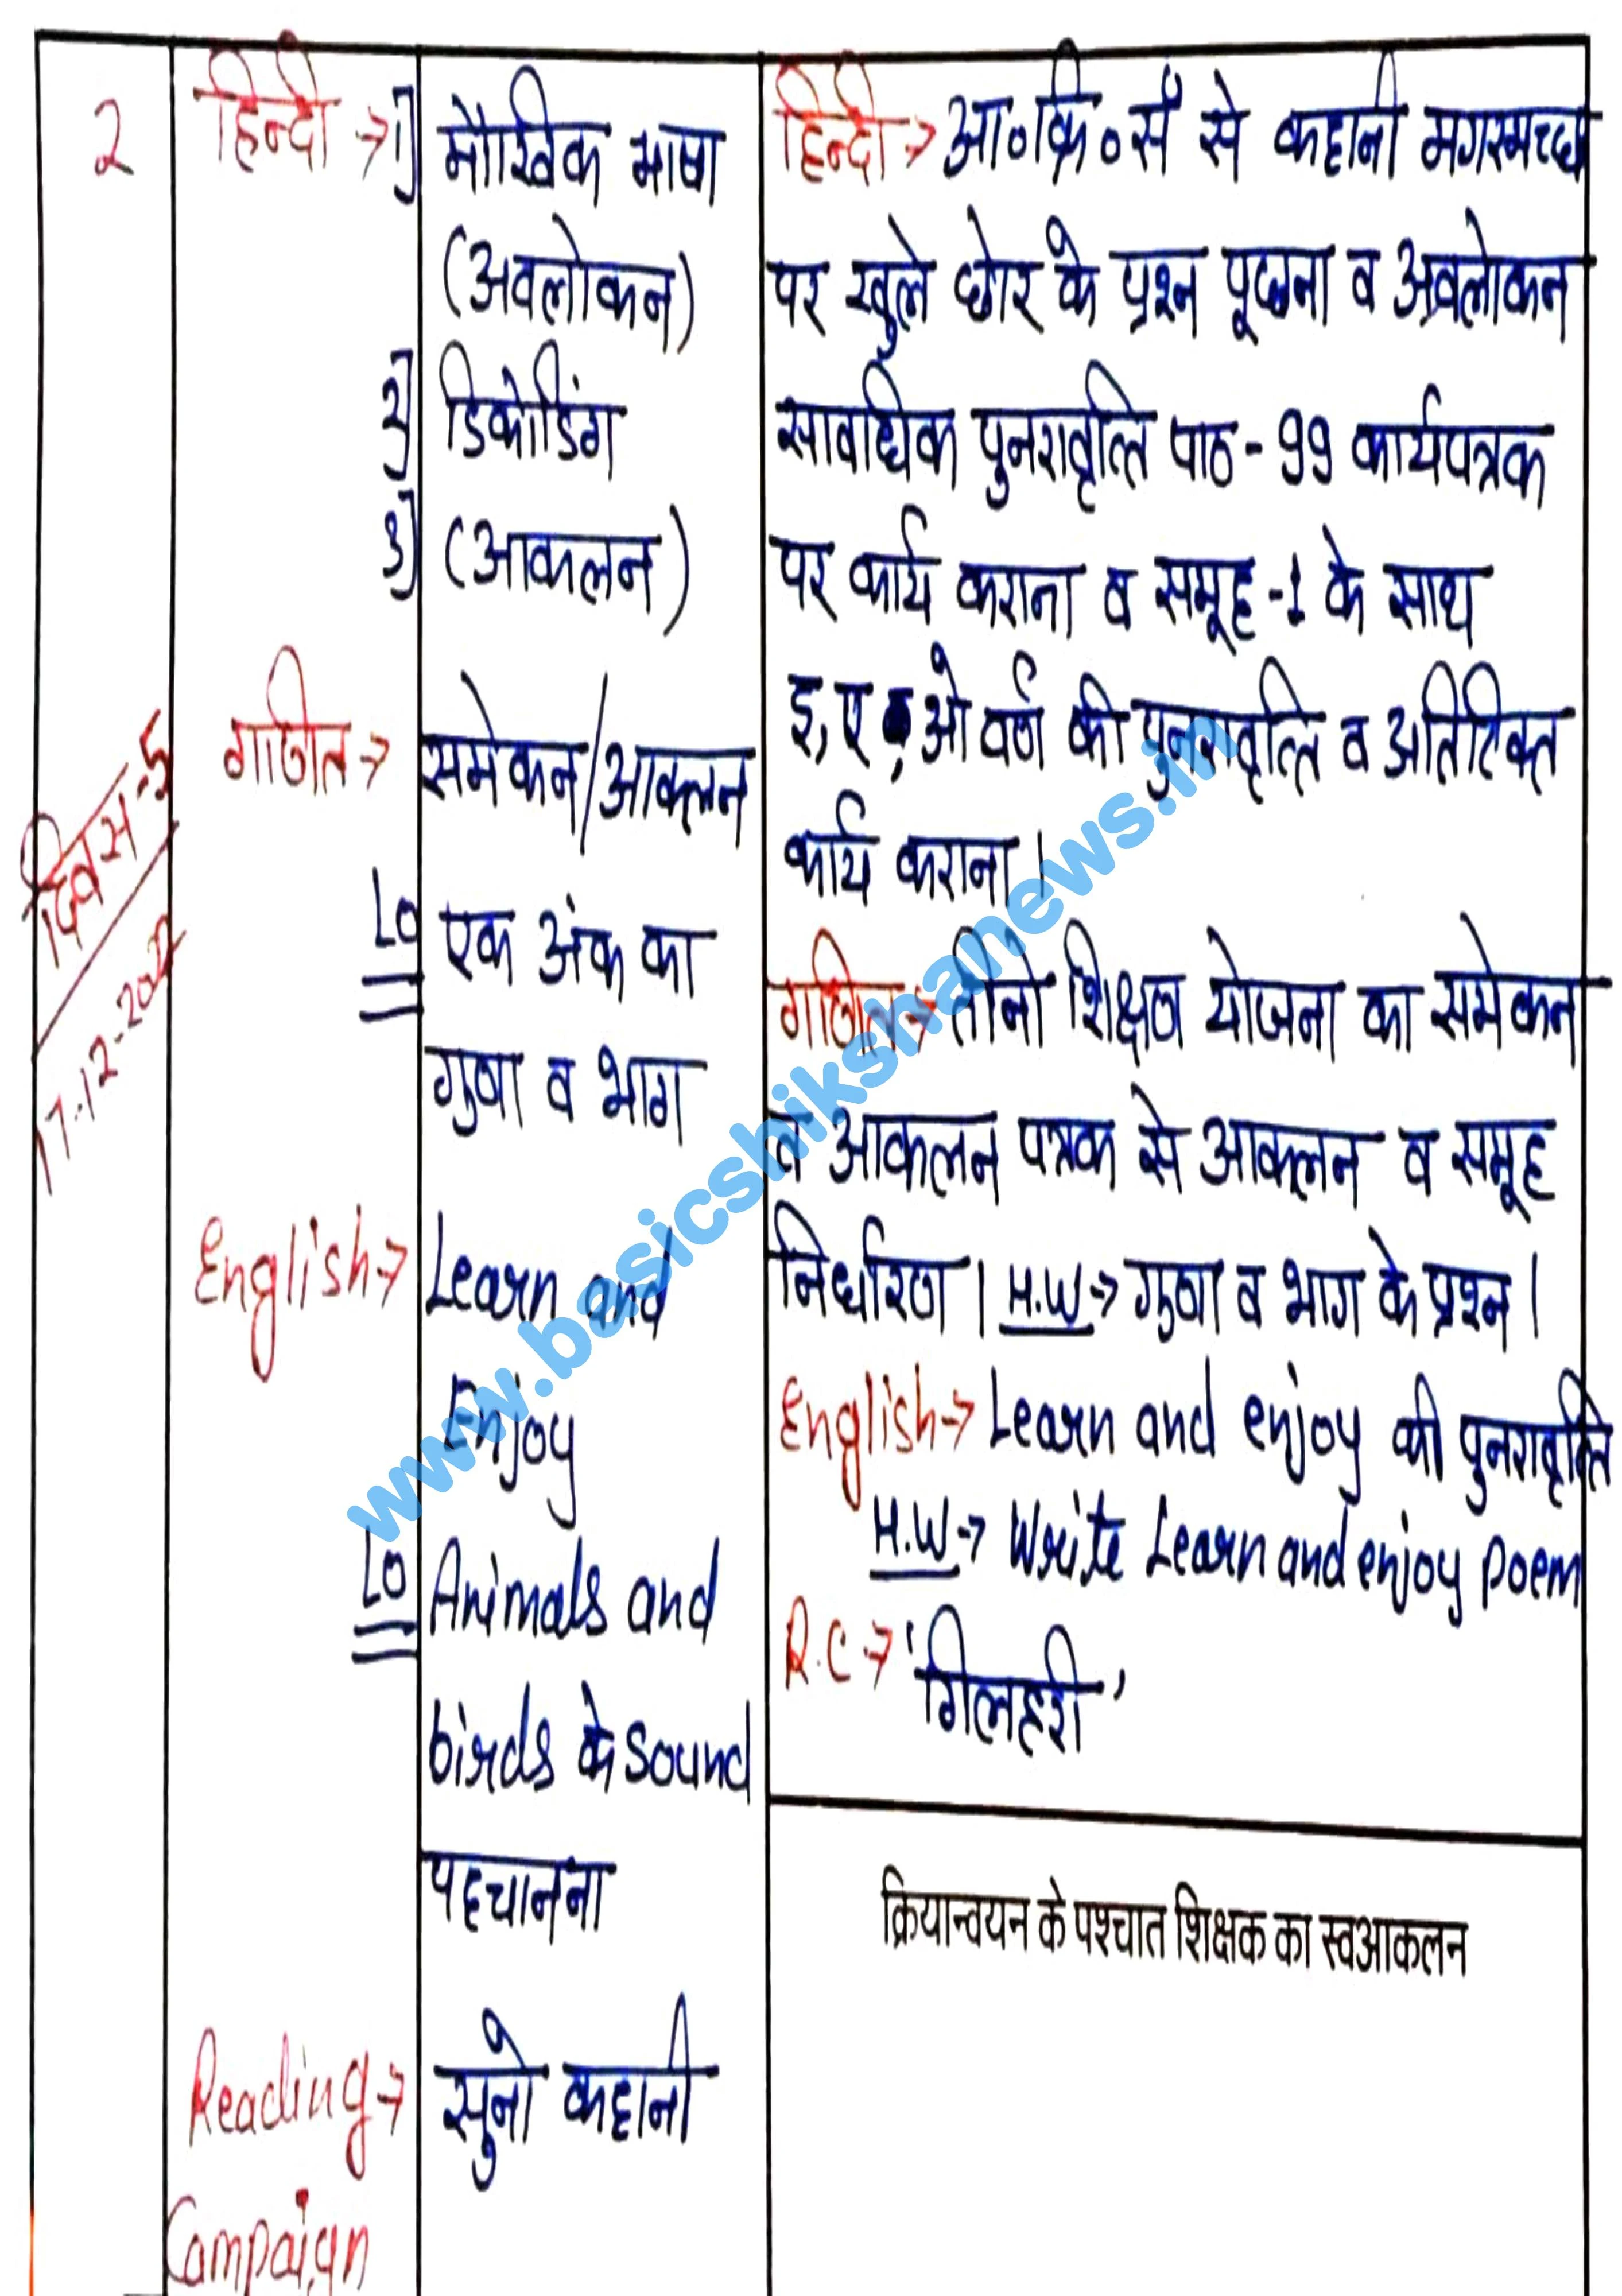 2
हिन्दी → 1]
मौखिक भाषा
(अवलोकन)
2]
डिकोडिंग
3]
(आकलन)
गणित →
समेकन/आकलन
LO
एक अंक का
गुणा व भाग
दिवस-5
English →
Learn and
Enjoy
LO
Animals and
birds के sound
पहचानना
Reading →
Campaign
सुनो कहानी
हिन्दी → आ०क्रि०सं से कहानी मगरमच्छ
पर खुले छोर के प्रश्न पूछना व अवलोकन
सावधिक पुनरावृत्ति पाठ - 99 कार्यपत्रक
पर कार्य कराना व समूह -1 के साथ
इ, ए, ओ वर्ण की पुनरावृत्ति व अतिरिक्त
कार्य कराना।
गणित → तीनो शिक्षण योजना का समेकन
व आकलन पत्रक से आकलन व समूह
निर्धारण। H.W → गुणा व भाग के प्रश्न।
English → Learn and enjoy की पुनरावृत्ति
H.W → Write Learn and enjoy poem
R.C → 'गिलहरी'
क्रियान्वयन के पश्चात शिक्षक का स्वआकलन
www.basicshikshanews.in